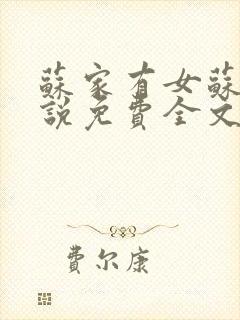 蘇家有女蘇
說免費全文
費尔康